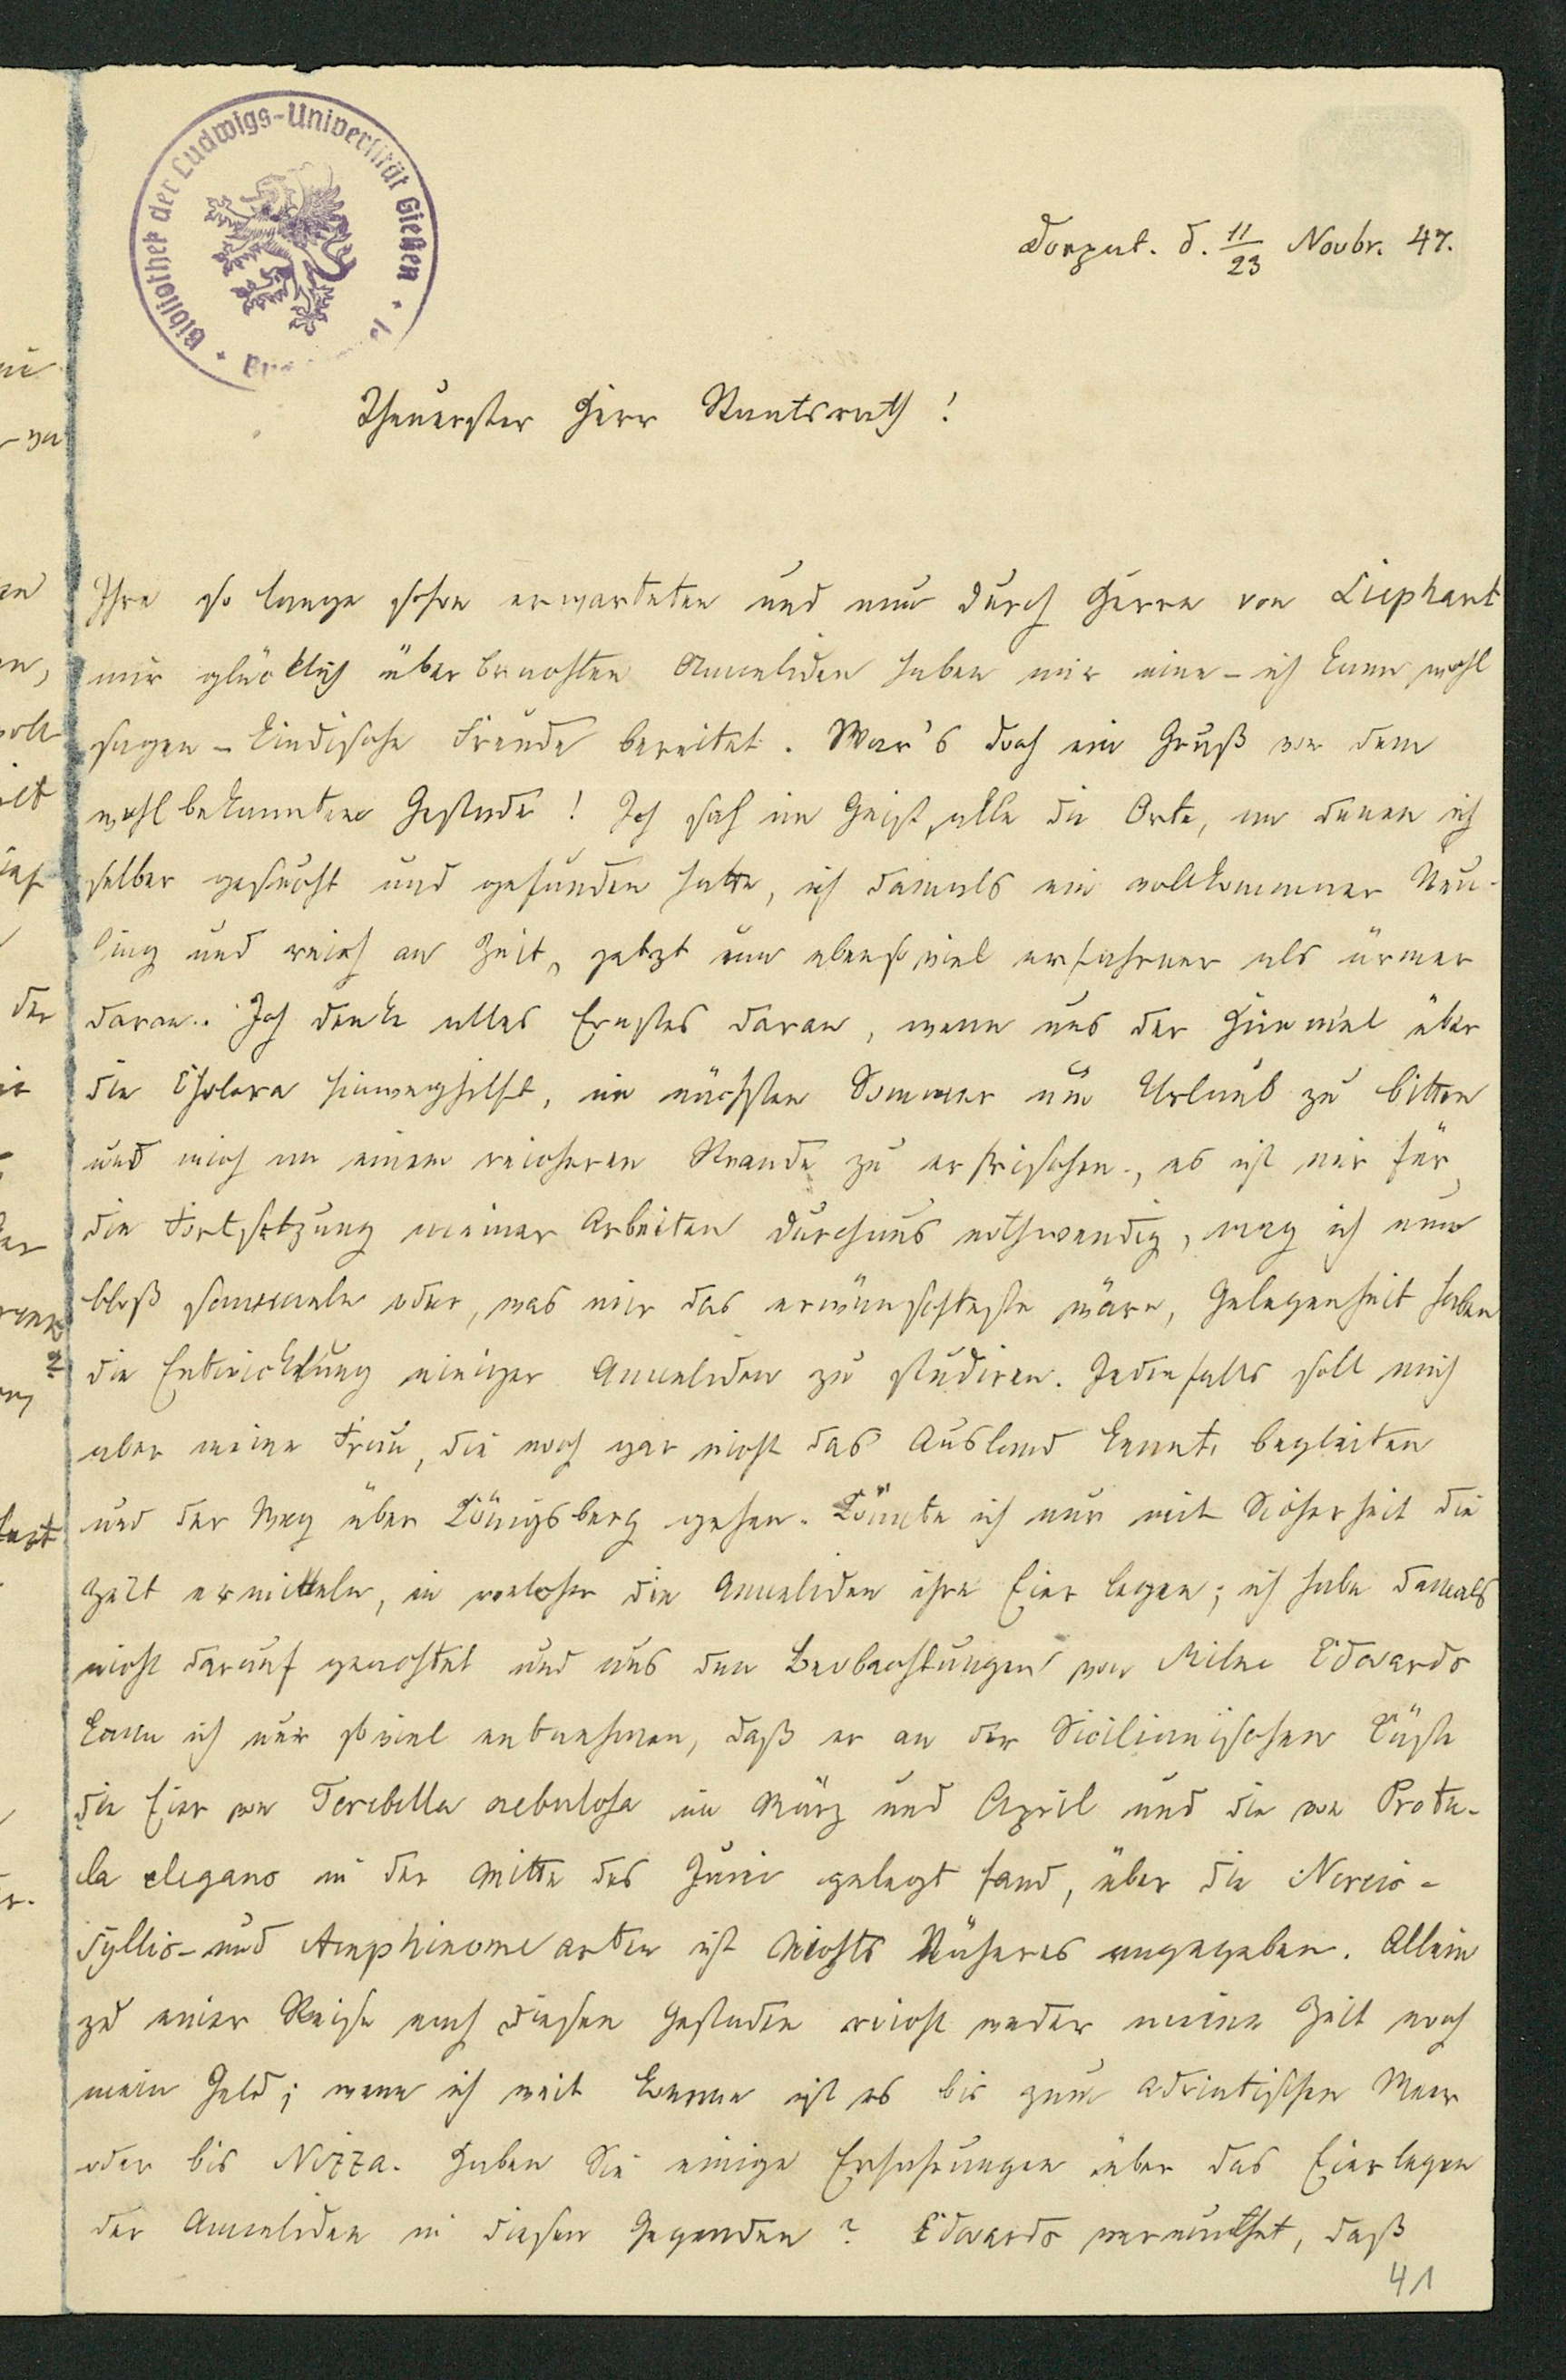 Bibliothek der Ludwigs-Universität Gießen
Dorpat. d. 11/23 Novbr. 47.
Theuerster Herr Staatsrath!
Ihre so lange schon erwarteten und nun durch Herrn von Liephart
mir glücklich überbrachten Anneliden haben mir eine – ich kann wohl
sagen – kindische Freude bereitet. War's doch ein Gruß von dem
wohlbekannten Gestade! Ich sah im Geist alle die Orte, an denen ich
selber gesucht und gefunden hatte, ich damals ein vollkommner Neu-
ling und reich an Zeit, jetzt nun ebensoviel erfahrner als ärmer
daran. Ich denke alles Ernstes daran, wenn uns der Himmel über
die Cholera hinweghilft, im nächsten Sommer um Urlaub zu bitten
und mich an einem reicheren Strande zu erfrischen, es ist mir für
die Fortsetzung meiner Arbeiten durchaus nothwendig, mag ich nun
bloß sammeln oder, was mir das erwünschteste wäre, Gelegenheit haben
die Entwicklung einiger Anneliden zu studiren. Jedenfalls soll mich
aber meine Frau, die noch gar nicht das Ausland kennt, begleiten
und der Weg über Königsberg gehen. Könnte ich nur mit Sicherheit die
Zeit ermitteln, in welcher die Anneliden ihre Eier legen; ich habe damals
nicht darauf geachtet und aus den Beobachtungen von Milne Edwards
kann ich nur soviel entnehmen, daß er an der Sicilianischen Küste
die Eier von Terebella nebulosa im März und April und die von Protu-
la elegans in der Mitte des Juni gelegt fand, über die Nereis-
Syllis- und Amphinomearten ist Nichts Näheres angegeben. Allein
zu einer Reise nach diesen Gestaden reicht weder meine Zeit noch
mein Geld; wenn ich weit komme ist es bis zum adriatischen Meer
oder bis Nizza. Haben Sie einige Erfahrungen über das Eierlegen
der Anneliden in diesen Gegenden? Edwards vermuthet, daß
41